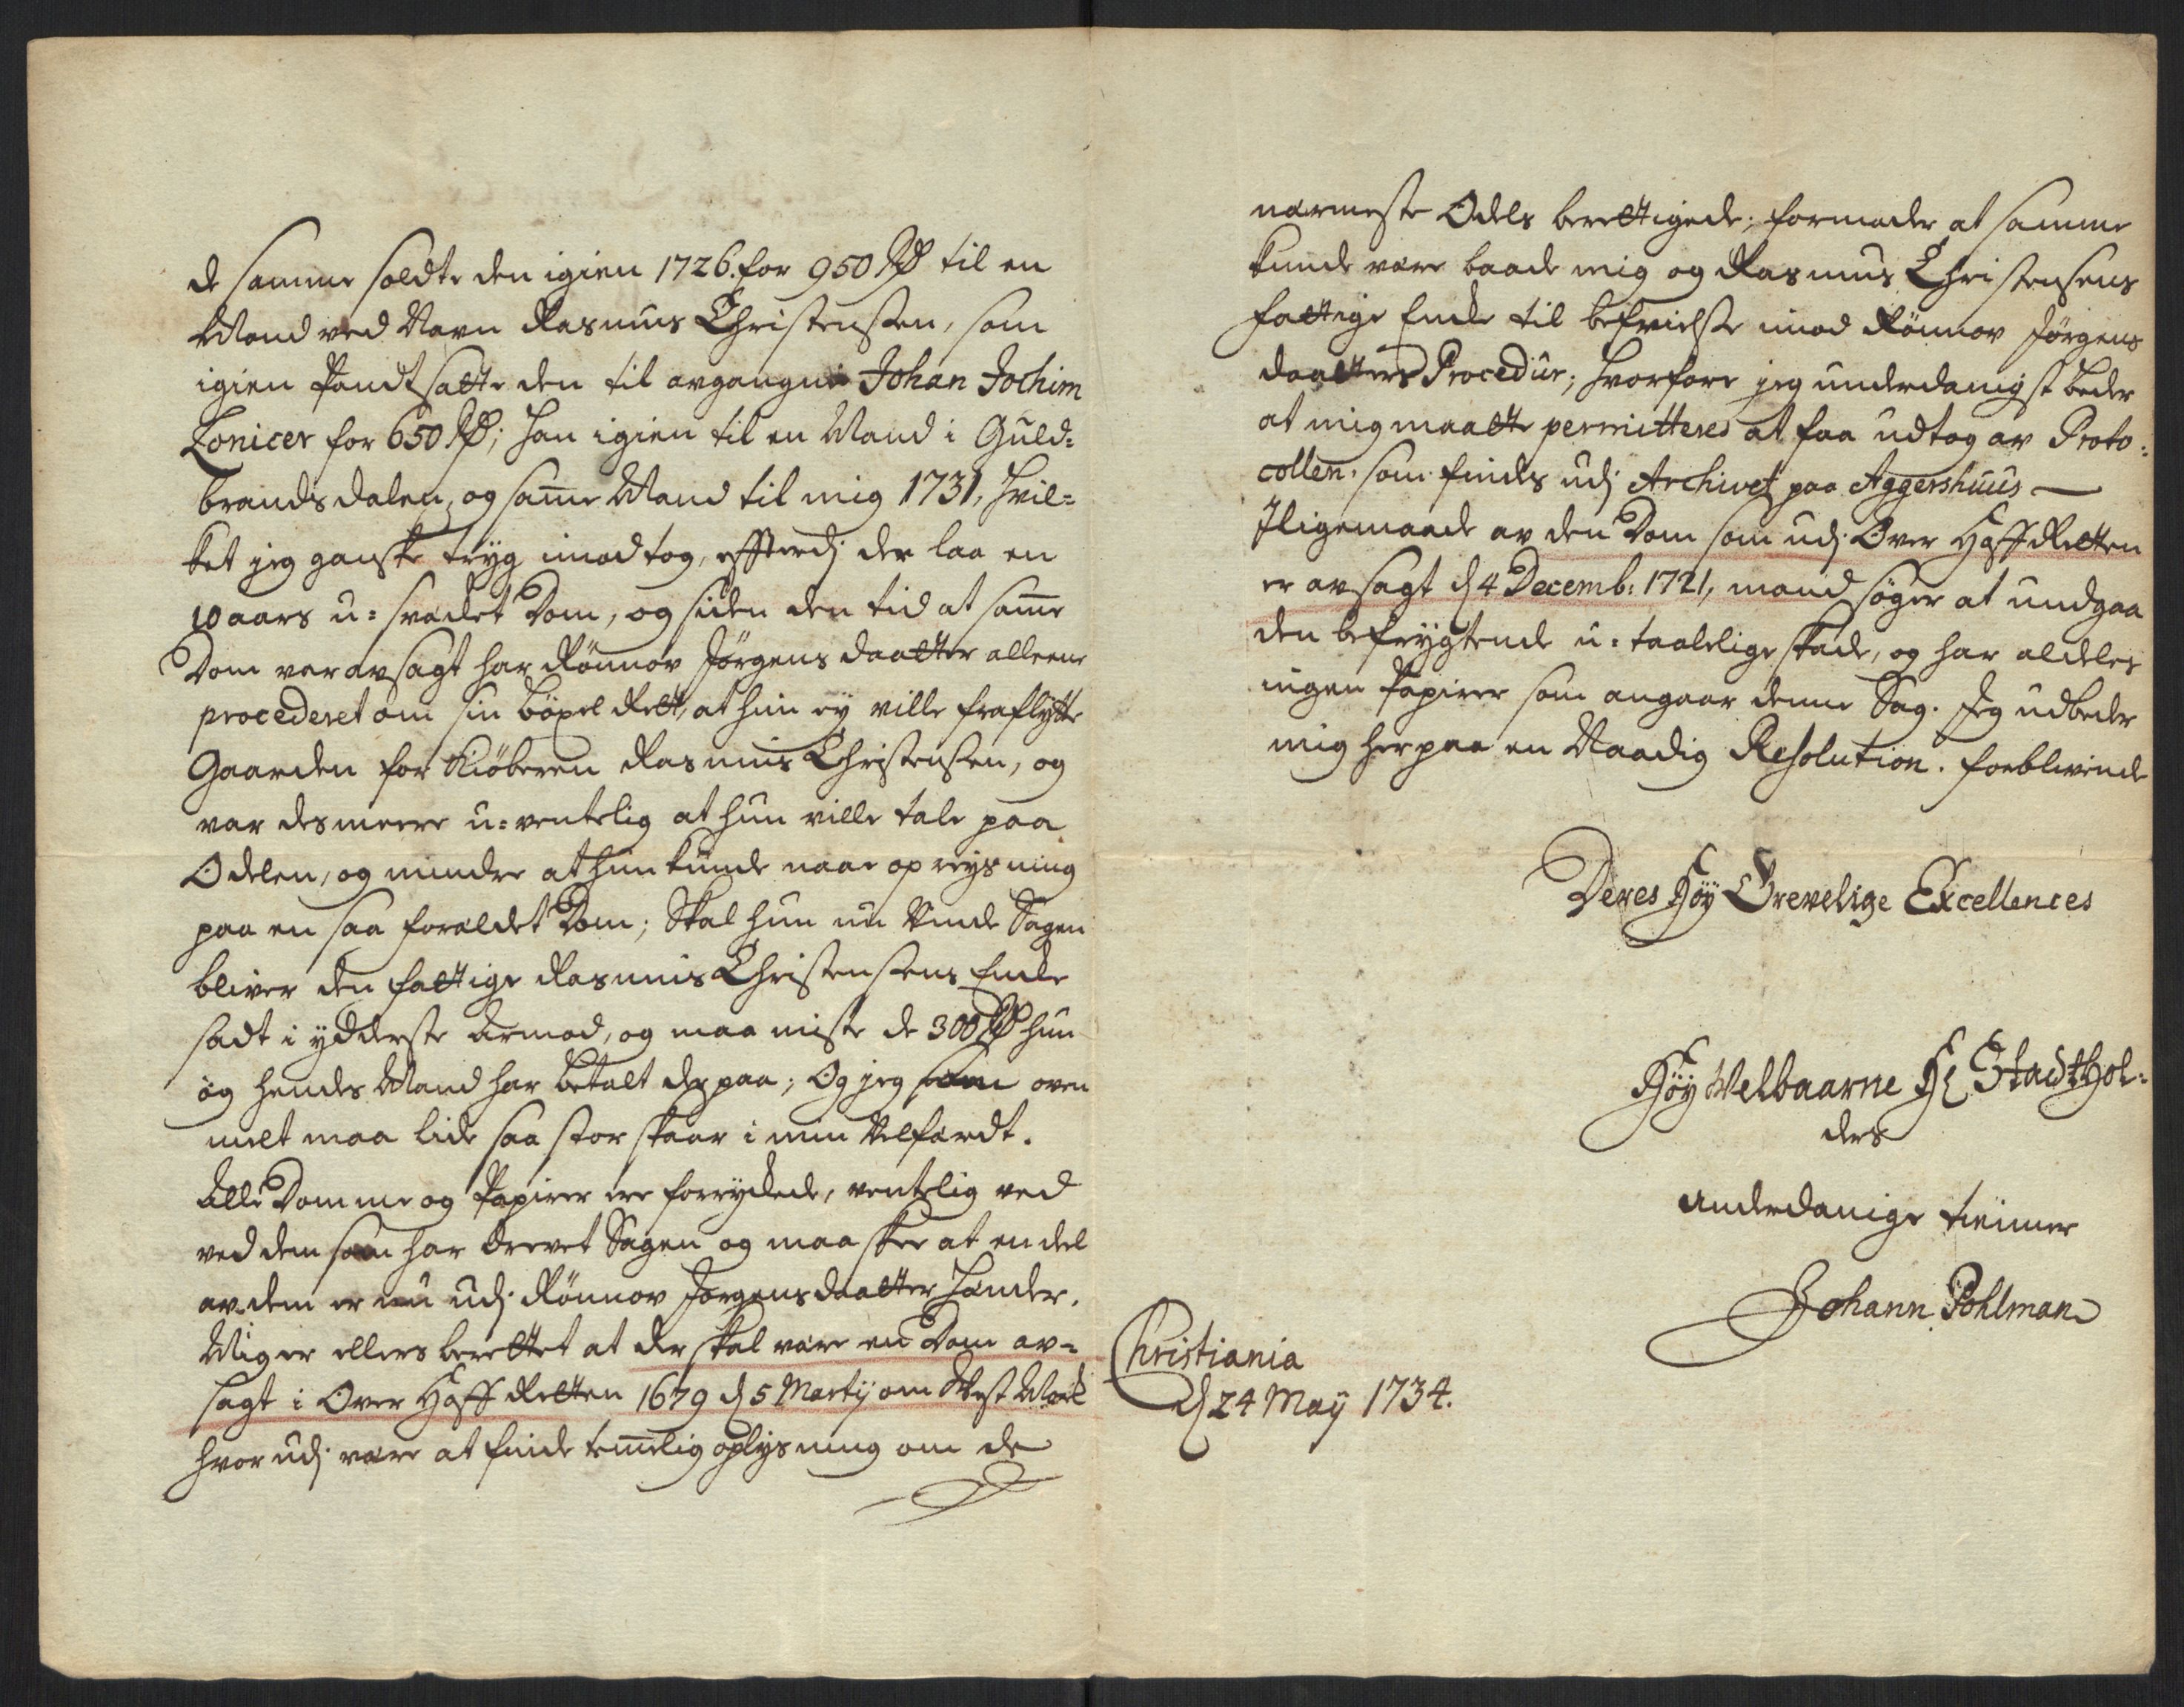 de samme soldte den igien 1726. for 950 Rd til en
Mand ved Navn Rasmus Christensen, som
igien Pandtsatte den til avgangne Johan Jochim
Lonicer for 650 Rd; han igien til en Mand i Guld=
brandsdalen, og sam̄e Mand til mig 1731, hvil=
ket jeg ganske tryg imodtog, efftterdj der laa en
10 aars u=svæket Dom, og siden den tid at sam̄e
Dom var avsagt har Rönnov Jörgens daatter alleene
procederet om sin böxel Rett, at hun ey ville fraflytte
Gaarden for Kiöberen Rasmus Christensen, og
var desmeere u=ventelig at hun ville tale paa
Odelen, og mindre at hun kunde naae opreysning
paa en saa foraldet Dom; Skal hun nu Vinde Sagen
bliver den fattige Rasmus Christensens Enke
sadt i ydderste Armod, og maa miste de 300 Rd hun
og hendes Mand har betalt der paa; Og jeg som oven
melt maa lide saa stor skaar i min Velfærdt.
Alle Domme og Papirer ere forrykede, ventelig ved
ved dem som har drevet Sagen og maa skee at en deel
av dem er nu udj Rönnov Jörgensdaatter hænder.
Mig er ellers berettet at der skal være en Dom av=
sagt i Over Hoff Retten 1679 d 5 Martij om Vest
hvor udj være at finde tem̄elig oplysning om de
nærmeste Odels berettigede; formoder at samme
kunde være baade mig og Rasmus Christensens
fattige Enke til befrielse imod Rönnov Jörgens
daatters Procedur; hvorfore jeg underdanigst beder
at mig maatte permitteres at faa udtog av Proto=
collen. som findes udj Archivet paa Aggershuus —
Jligemaade av den Dom som udj Over Hoff Retten
er avsagt d 4 Decemb: 1721, mand söger at undgaa
den befrygtende u=taalelige skade, og har aldeles
ingen Papirer som angaar denne Sag. Jeg udbeder
mig herpaa en Naadig Resolution. forblivende
Deres Höy Grevelige Excellences
Höy Welbaarne Hr Stadthol=
ders
underdanige tiener
Johann Pohlman
Christiania
d 24 May 1734.